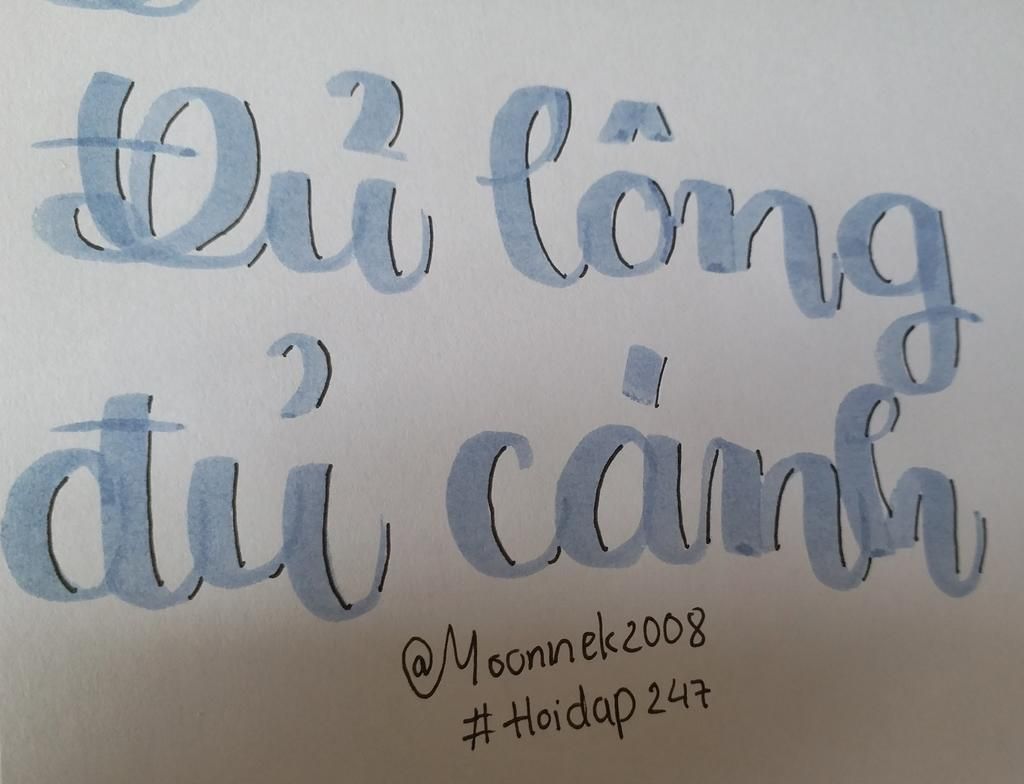 Đủ lông
đủ cánh
@Moonnek2008
#Hoidap247